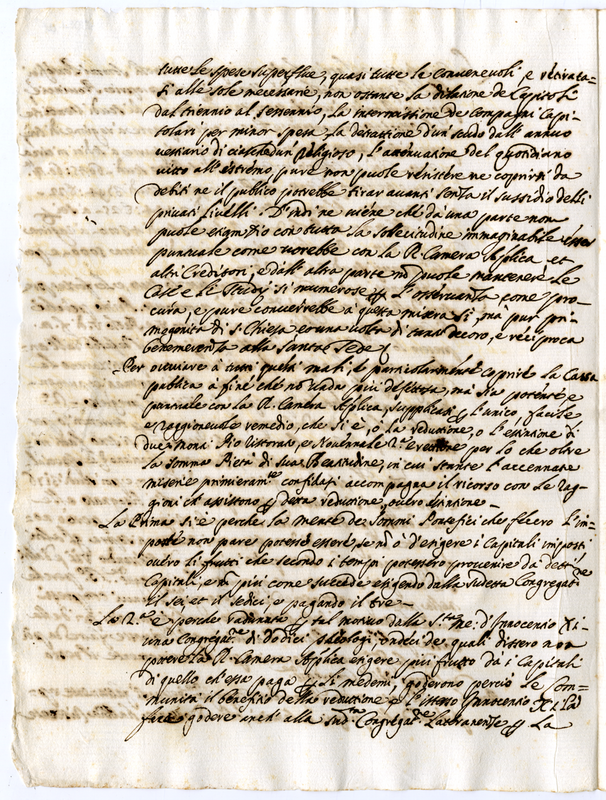 tutte le spese superflue, quasi tutte le convenevoli, e ritirata-
si alle sole necessarie, non ostante la dilazione de Capitoli
dal triennio al sessennio, la intermissione de compagni Capi-
tolari per minor spesa la detrazione d'un scudo dall'annuo
vestiario di ciascheun religioso, l'attenuazione del quotidiano
vitto all'estremo, pure non puole resistere ne coprirsi da
debiti ne il publico potrebbe tirar avanti senza il sussidio delli
privati livelli. Quindi ne viene che da una parte non
puole con tutta la sollecitudine immaginabile esser
puntuale come vorebbe con la R. Camera Aplica, et
altri Creditori, e dall'altra parte nō puole mantenere le
Case e li Studij si numerose l'osservanza come pro-
cura, e pure converrebbe a questa misera si, ma pur pri-
mogenita di S. Chiesa et una volta di decoro, e reciproca
benemerenza alla Santa Sede
Per ovviare a tutti questi mali, e particolarmente coprire la Cassa
publica a fine che nō vada più difettosa, ma sia potente e
puntuale con la R. Camera Aplica, l'unico, facile
e raggionevole remedio, che si è, ò la reduzzione, o l'estinzione di
due Monti Pio Ristorato, e Novennale 2.a erezzione per lo che oltre
la somma Pietà di sua Beatitudine, in cui stante l'accennate
miserie primieram.te confidasi accompagna il ricorso con le rag-
gioni ch'assistono detta reduzzione, overo estinzione-
La Prima si è perche la mente de Sommi Pontefici che fecero l'im-
poste non pare potesse essere se nō ò d'esigere i Capitali imposti
overo li frutti che secondo i tempi potessero provenire da detti
Capitali, e nō più come succede esigendo dalla sudetta Congregat.ne
il sei, et il sedici, e pagando il tre-
La 2.a è perche radunata tal motivo dalla S.ta me: d'Innocenzo XI:
una Congregat.ne di dodici theologi, undeci de quali dissero non
potere la R. Camera Aplica esigere più frutto da i Capitali
di quello ch'essa paga li medemi, goderono perciò le Com-
munità il benefitio della reduzzione e l'istesso Innocenzo XI: la
fece godere anch'alla sud.ta Congregat.ne Lateranense La